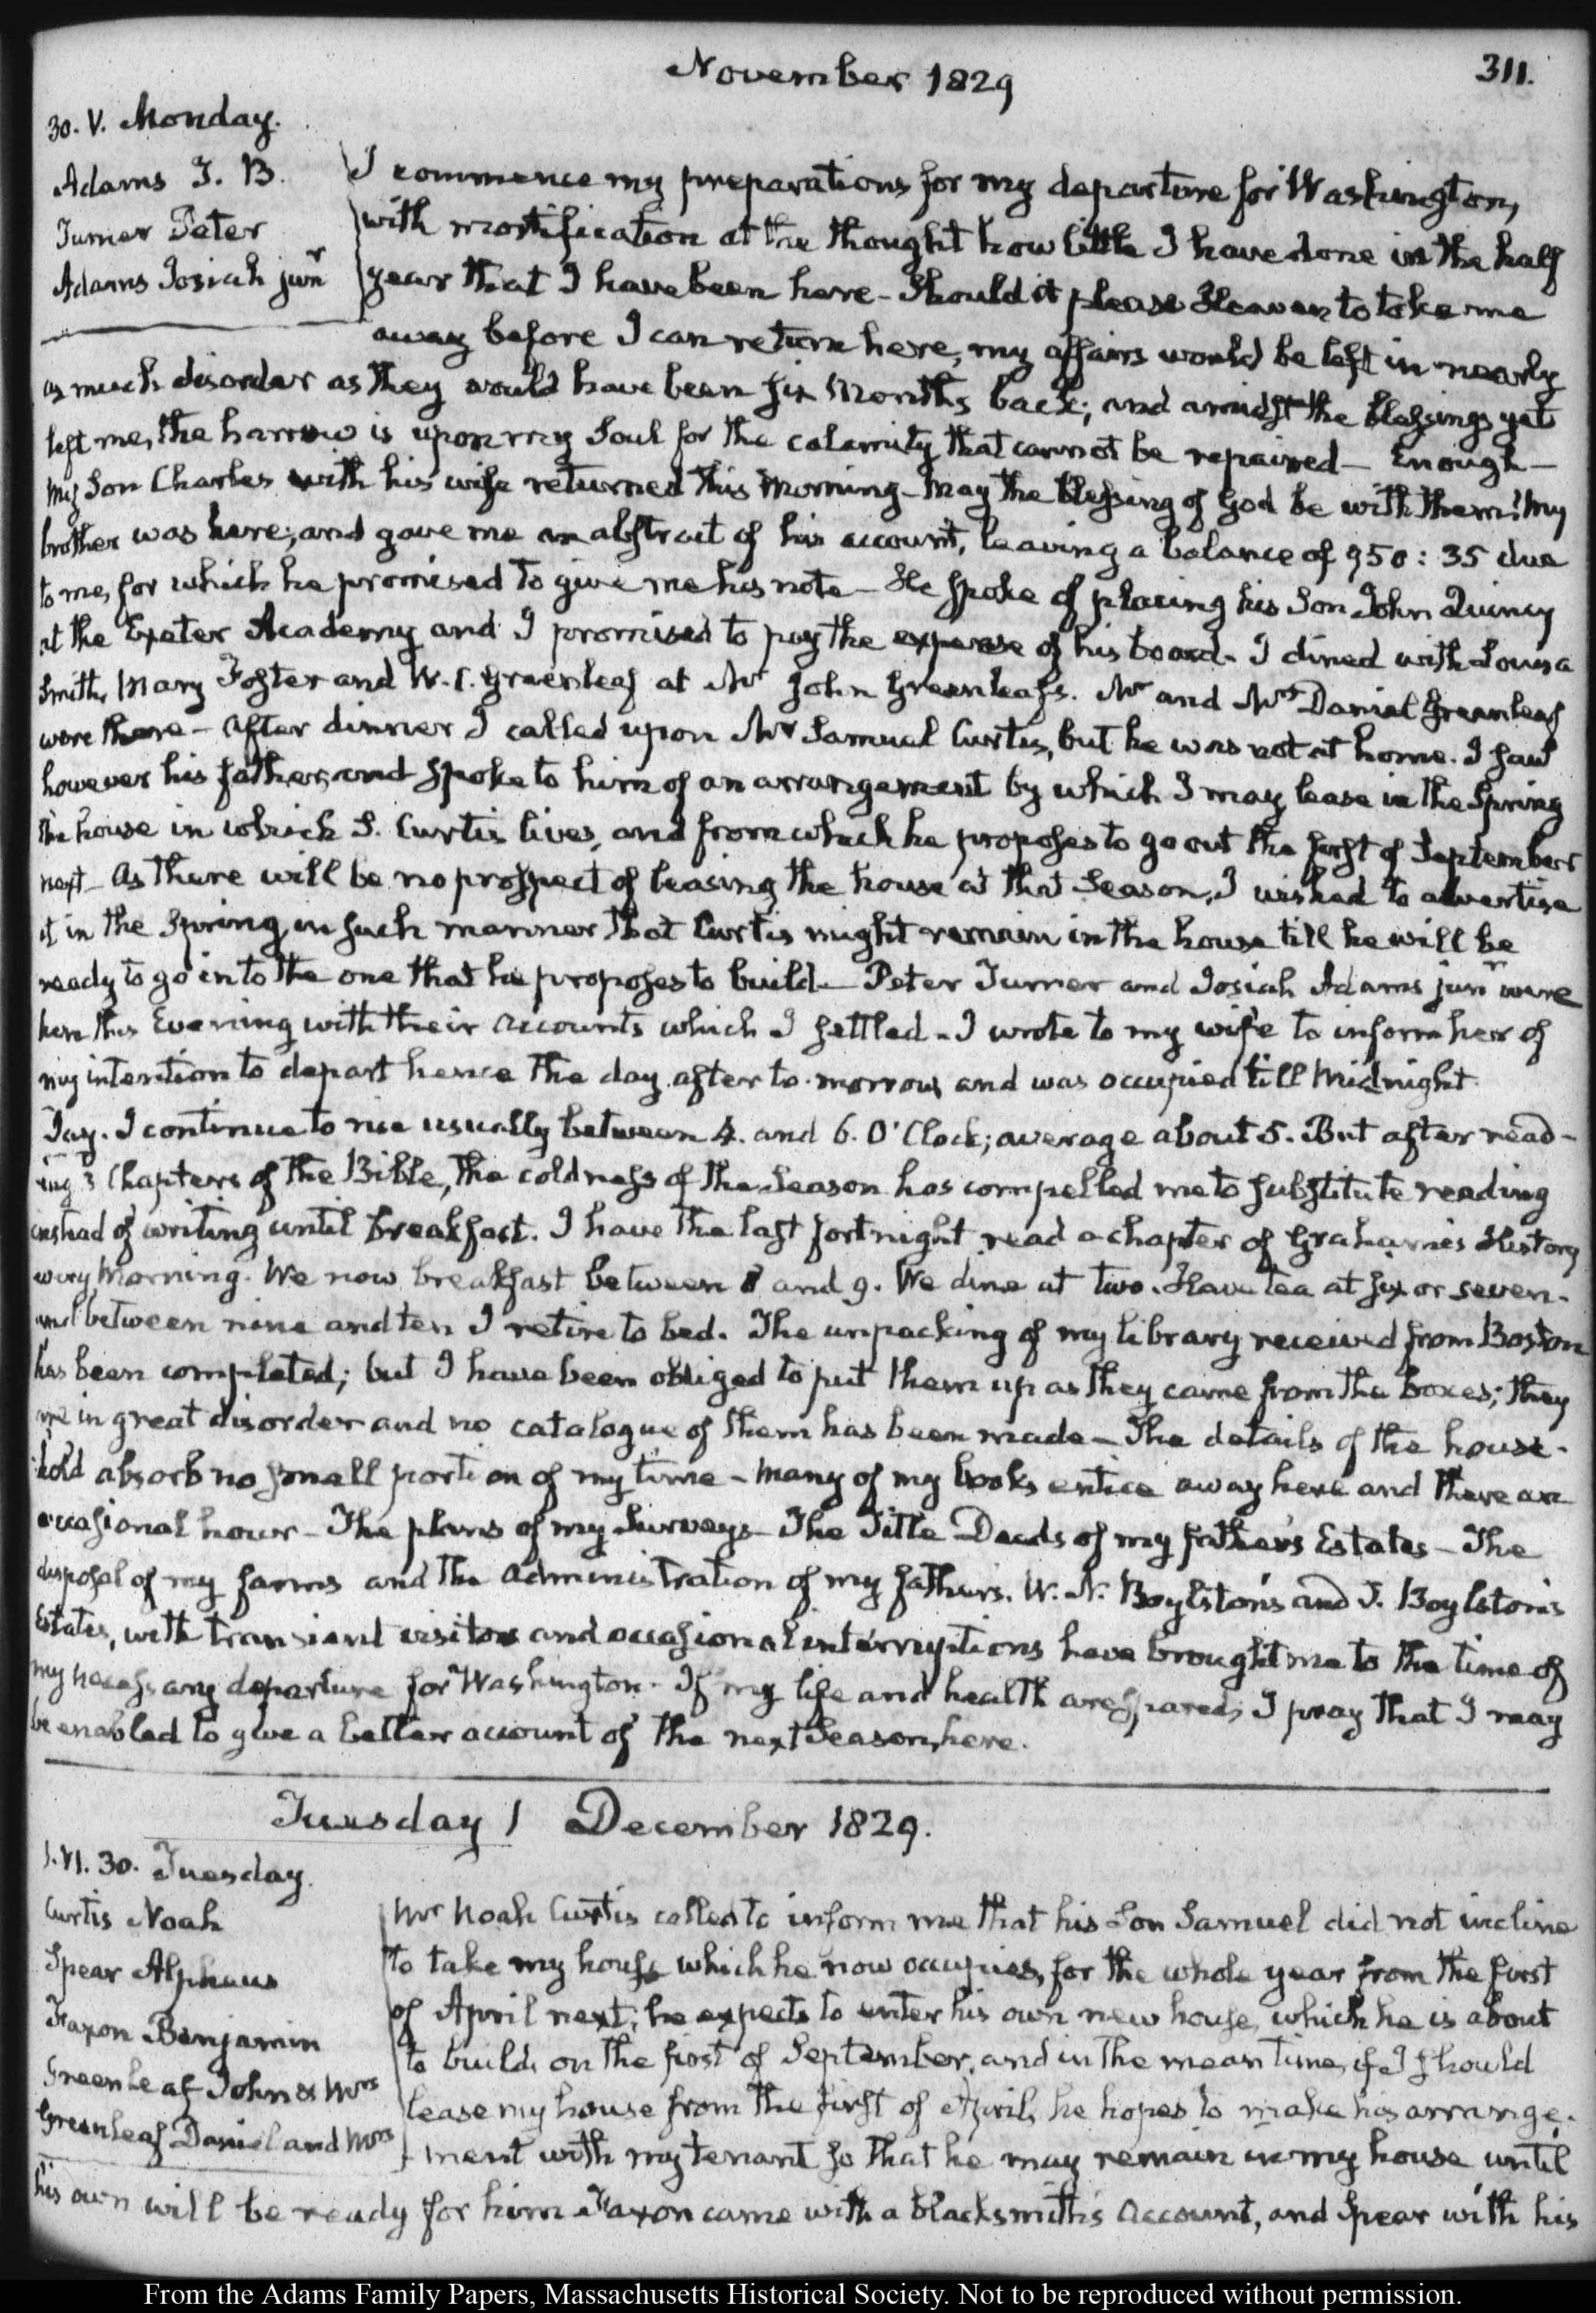 November 1829
311.
30. V. Monday.
Adams T. B.
Turner Peter
Adams Josiah junr
I commence my preparations for my departure for Washington,
with mortification at the thought how little I have done in the half
year that I have been here – Should it please Heaven to take me
away before I can return here, my affairs would be left in nearly
as much disorder as they would have been six Months back; and amidst the blessings yet
left me, the harrow is upon my Soul for the calamity that cannot be repaired – Enough –
My Son Charles with his wife returned this Morning – May the blessing of God be with them! My
brother was here; and gave me an abstract of his account, leaving a balance of 950 : 35 due
to me, for which he promised to give me his note – He spoke of placing his Son John Quincy
at the Exeter Academy and I promised to pay the expense of his board – I dined with Louisa
Smith, Mary Foster and W. C. Greenleaf at Mr John Greenleaf's. Mr and Mrs Daniel Greenleaf
were there – After dinner I called upon Mr Samuel Curtis, but he was not at home. I saw
however his father, and spoke to him of an arrangement by which I may lease in the Spring
the house in which S. Curtis lives, and from which he proposes to go out the first of September
next – As there will be no prospect of leasing the house at that Season, I wished to advertise
it in the Spring, in such manner that Curtis might remain in the house till he will be
ready to go into the one that he proposes to build – Peter Turner and Josiah Adams junr were
here this Evening with their Accounts which I settled – I wrote to my wife to inform her of
my intention to depart hence the day after to-morrow, and was occupied till Midnight
Day. I continue to rise usually between 4. and 6. O'Clock; average about 5. But after read-
ing 3 Chapters of the Bible, the coldness of the Season has compelled me to substitute reading
instead of writing until breakfast. I have the last fortnight read a chapter of Grahame's History
every Morning. We now breakfast between 8 and 9. We dine at two. Have tea at six or seven.
and between nine and ten I retire to bed. The unpacking of my library received from Boston
has been completed; but I have been obliged to put them up as they came from the boxes; they
are in great disorder and no catalogue of them has been made – The details of the house-
hold absorb no small portion of my time – Many of my books entice away here and there an
occasional hour – The plans of my Surveys – The Title Deeds of my father's Estates – The
disposal of my farms and the Administration of my father's. W. N. Boylston's and T. Boylston's
Estates, with transient visitors and occasional interruptions have brought me to the time of
my necessary departure for Washington. If my life and health are spared, I pray that I may
be enabled to give a better account of the next Season, here.
Tuesday 1 December 1829.
1. VI. 30. Tuesday.
Curtis Noah
Spear Alpheus
Faxon Benjamin
Greenleaf John & Mrs
Greenleaf Daniel and Mrs
Mr Noah Curtis called to inform me that his Son Samuel did not incline
to take my house which he now occupies, for the whole year from the first
of April next; he expects to enter his own new house, which he is about
to build, on the first of September, and in the mean time, if I should
lease my house from the first of April, he hopes to make his arrange-
ment with my tenant so that he may remain in my house until
his own will be ready for him. Faxon came with a blacksmith's Account, and Spear with his
From the Adams Family Papers, Massachusetts Historical Society. Not to be reproduced without permission.